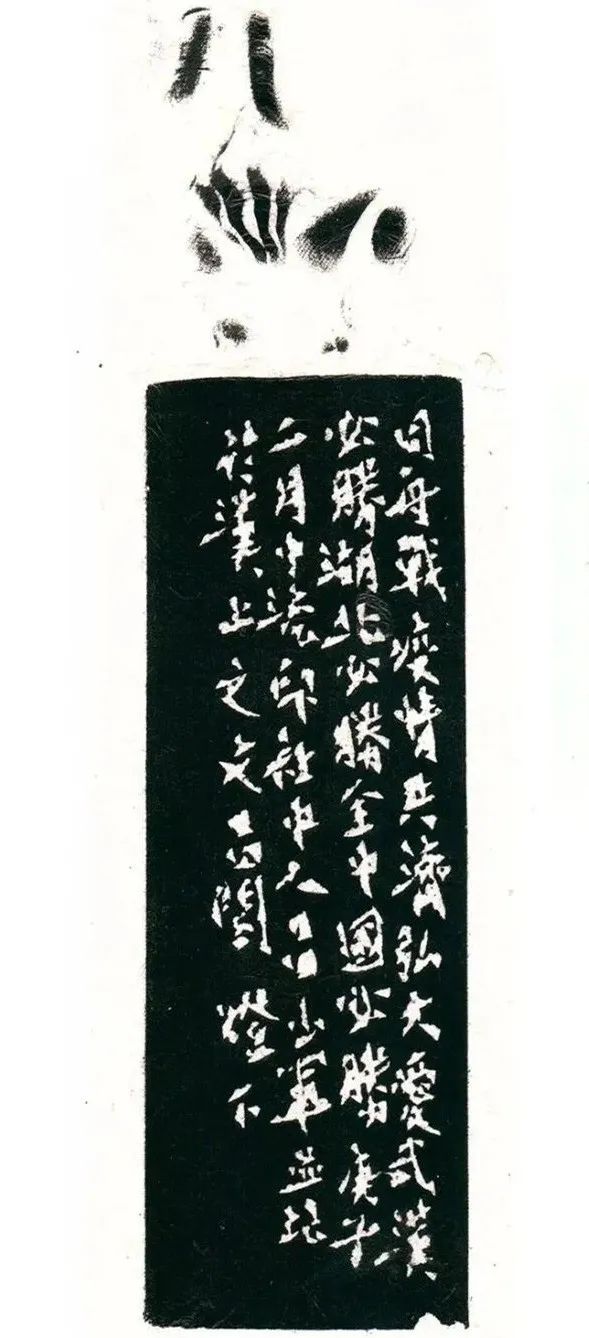 同舟戰疫情共濟弘大愛武漢
必勝湖北必勝全中國必勝庚子
二月中浣印社中人百山軍並琢
於漢上之文古閣 燈下